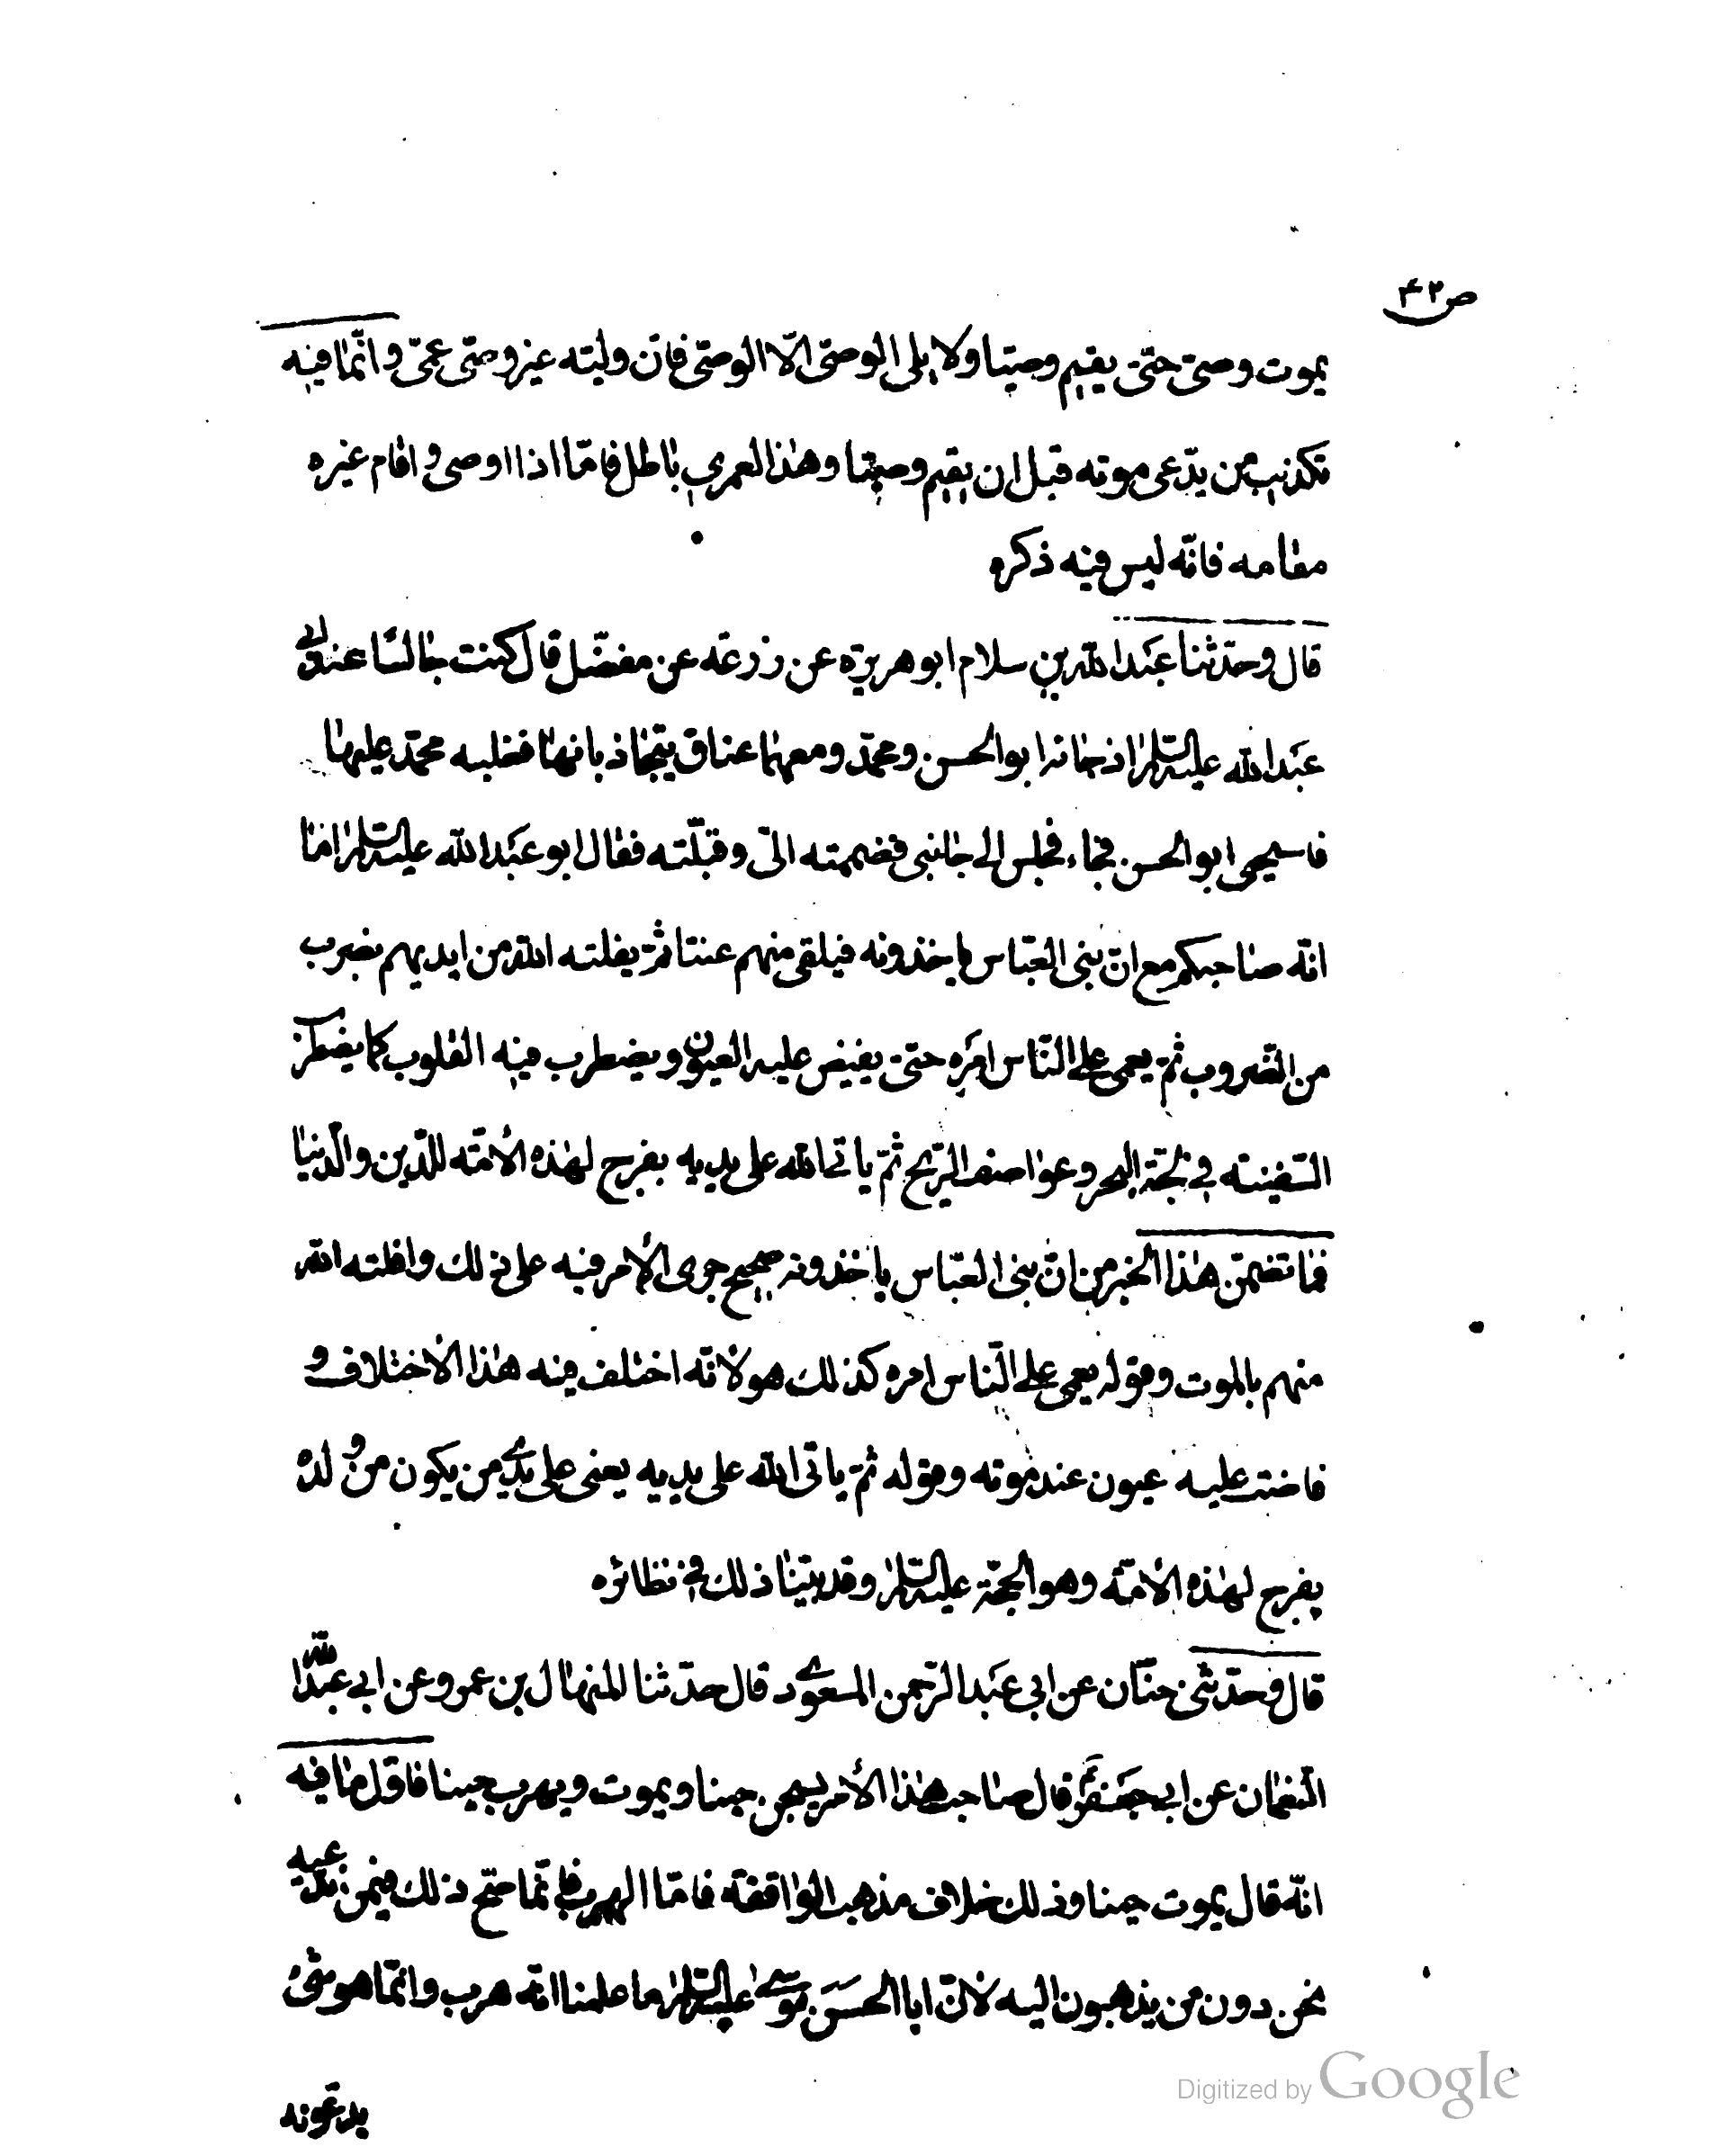 ص ۴۲
يموت وصى حتى يقيم وصيا ولا يلى الوصى الّا الوصى فان وليته غير وصى عمى وانّما فيه
تكذيب من يدّعى موته قبل ان يقيم وصيا وهذا لعمرى باطل فامّا اذا اوصى واقام غيره
مقامه فانّه ليس فيه ذكره
قال وحدّثنا عبد الله بن سلام ابو هريرة عن زرعة عن مفضّل قال كنت جالسا عند ابى
عبد الله عليه السلام اذ جائه ابو الحسن ومحمّد ومعهما عناق يتجاذبانها فغلبه محمّد عليها
فاستحيى ابو الحسن فجاء فجلس الى جانبى فضممته الىّ وقبّلته فقال ابو عبد الله عليه السلام اما
انّه صاحبكم مع انّ بنى العبّاس ياخذونه فيلقى منهم عنتا ثمّ يفلته الله من ايديهم بضرب
من الضروب ثمّ يعمى على النّاس امره حتى يفيض عليه العيون ويضطرب فيه القلوب كما يضطرب
السّفينة فى لجّة البحر وعواصف الرّيح ثمّ ياتى الله على يديه بفرج لهذه الأمّة للدّين والدّنيا
فما تضمّن هذا الخبر من انّ بنى العبّاس ياخذونه صحيح جرى الأمر فيه على ذلك وافلته الله
منهم بالموت وقوله يعمى على النّاس امره كذلك هو لأنّه اختلف فيه هذا الاختلاف و
فاضت عليه عيون عند موته وقوله ثمّ ياتى الله على يديه يعنى على يدى من يكون من ولده
بفرج لهذه الأمّة وهو الحجّة عليه السلام وقد بيّنا ذلك فى نظائره
قال وحدّثنى حنّان عن ابى عبد الرّحمن المسعودى قال حدّثنا المنهال بن عمرو عن ابى عبد الله
النّعمان عن ابى جعفر قال صاحب هذا الأمر يسجن حينا ويموت ويهرب حينا فاوّل ما فيه
انّه قال يموت حينا وذلك خلاف مذهب الواقفة فامّا الهرب فانّما صحّ ذلك فيمن ندّعيه
نحن دون من يذهبون اليه لأنّ ابا الحسن موسى عليه السلام ما علمنا انّه هرب وانّما هو شىء
يدّعونه
Digitized by Google